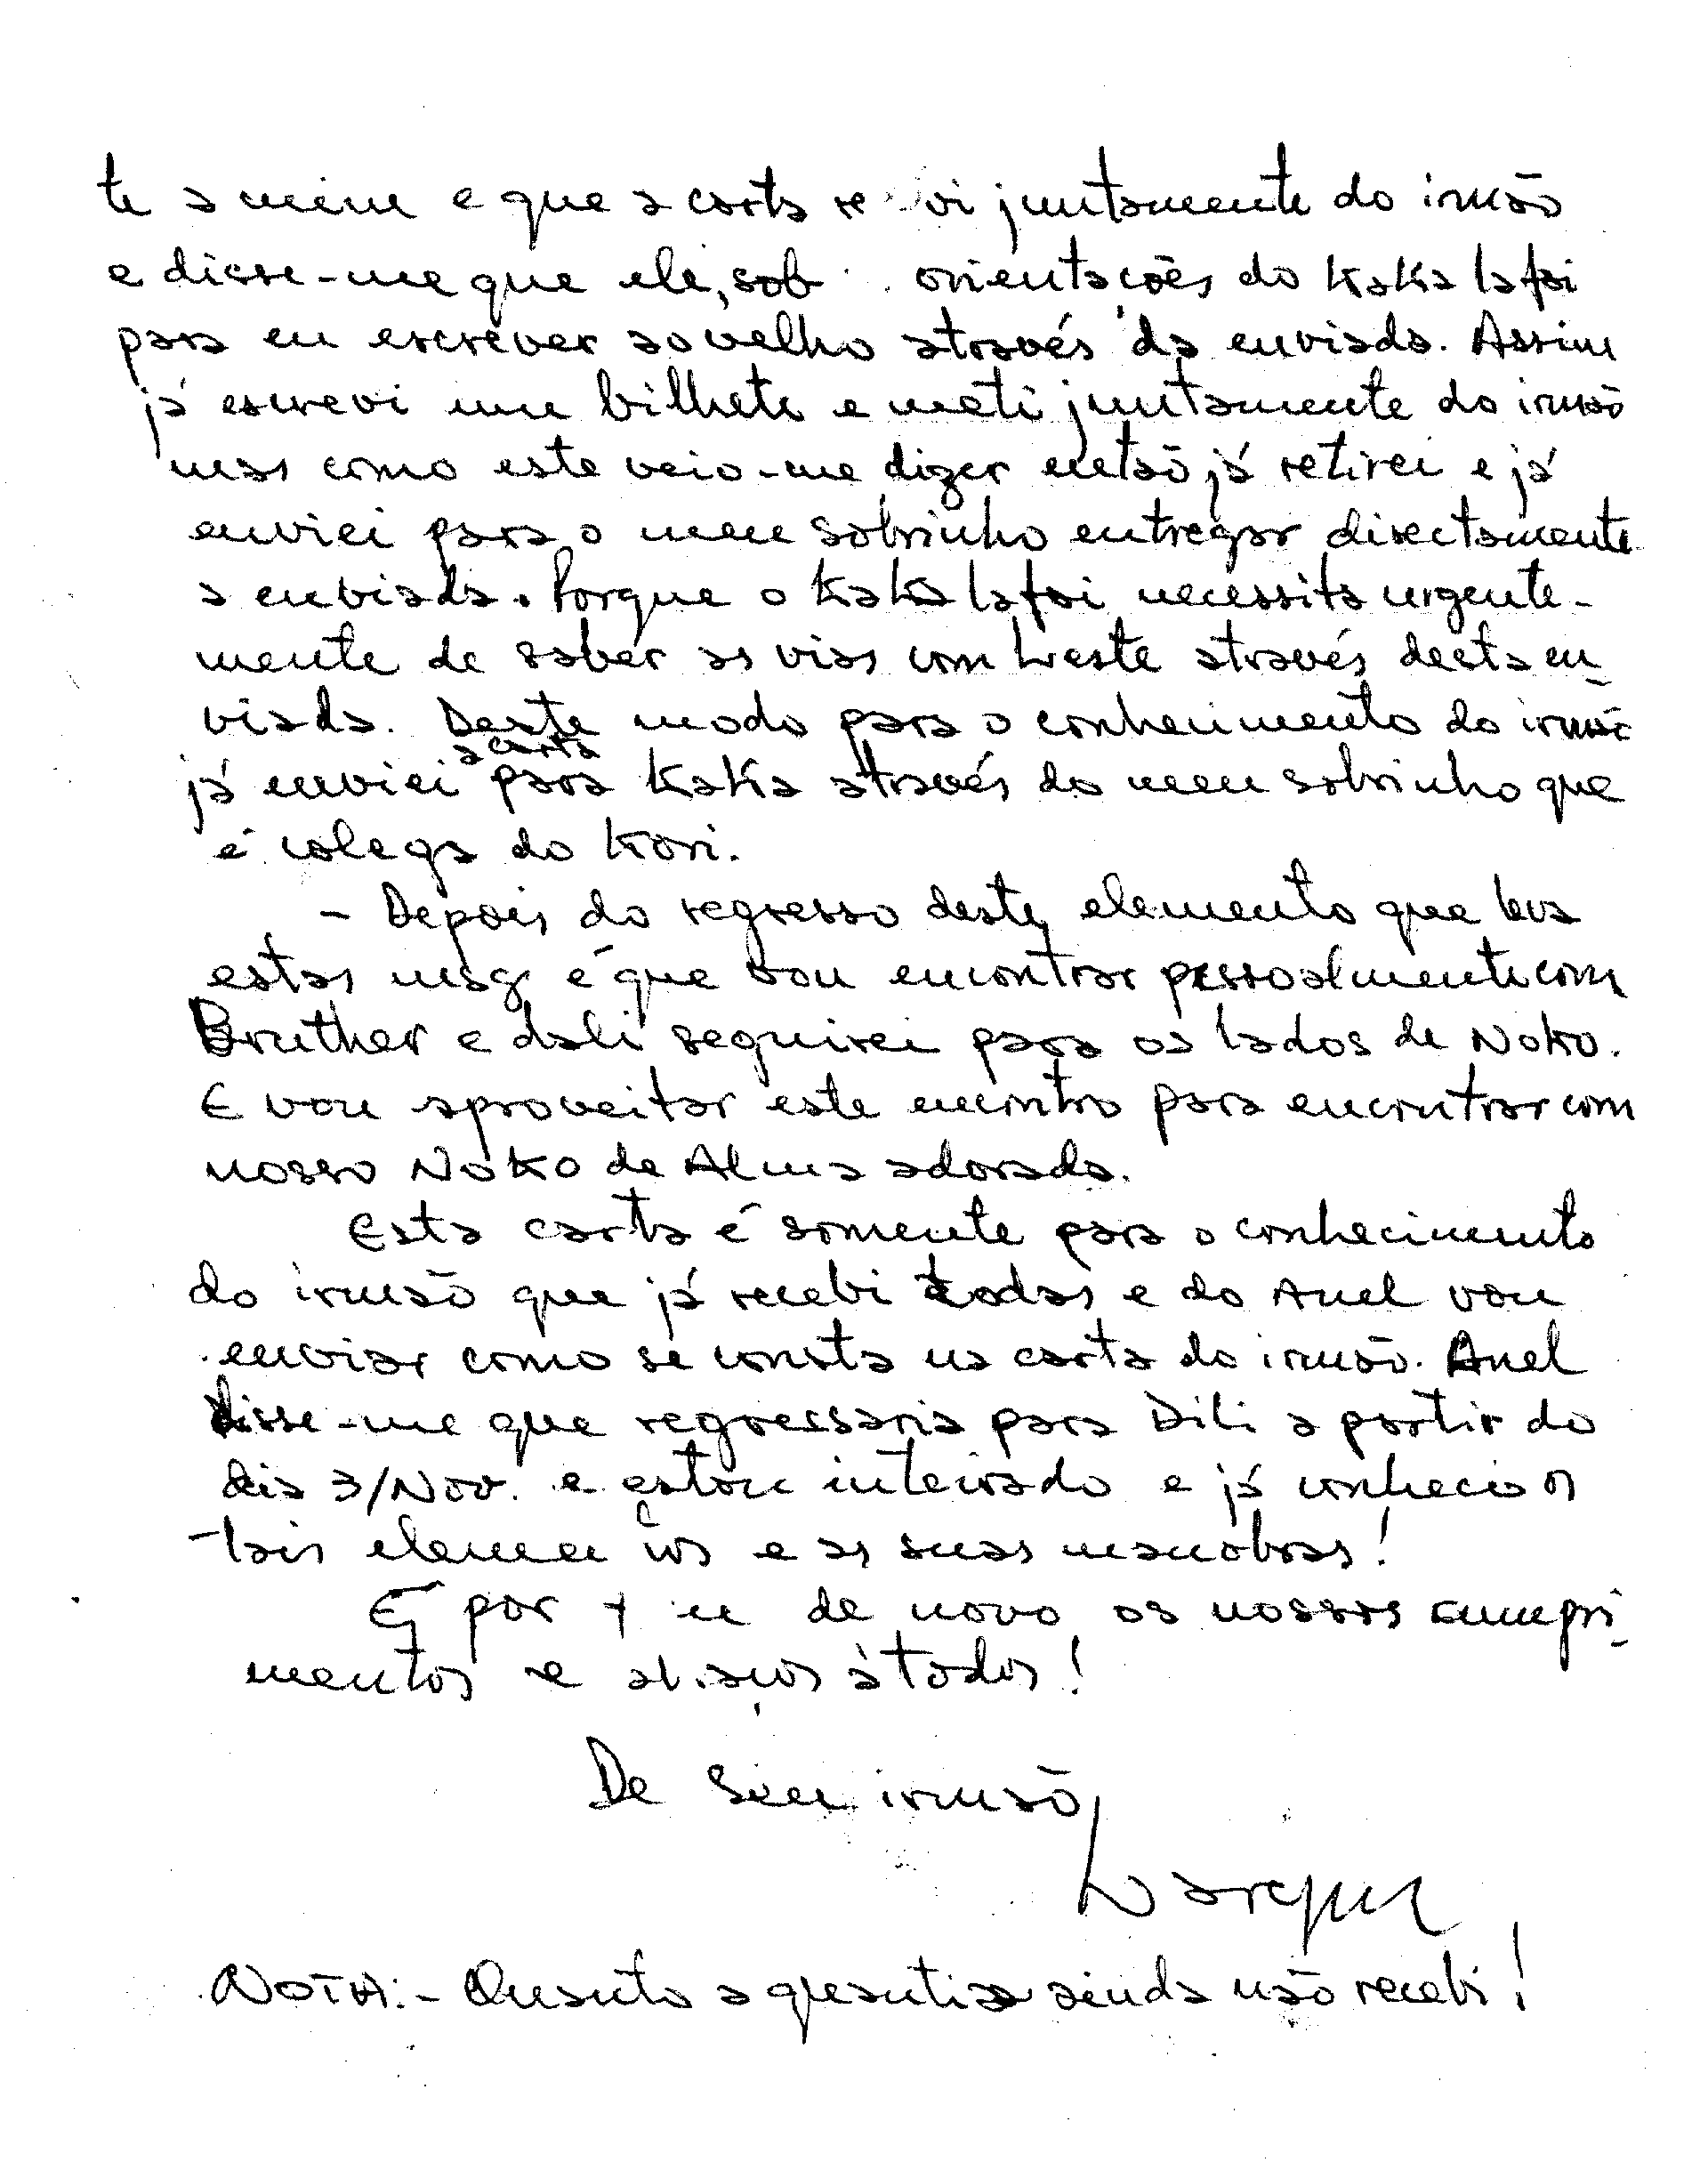 te a mim e que a carta re vi juntamente do irmão
e disse-me que ele, sob orientações do Kaka lafai
para eu escrever ao velho através da enviada. Assim
já escrevi um bilhete e meti juntamente do irmão
mas como este veio-me dizer então já retirei e já
enviei para o meu sobrinho entregar directamente
a enviada. Porque o Kaka lafai necessita urgente-
mente de saber as vias com Weste através desta en
viada. Deste modo para o conhecimento do irmão
já enviei a carta para Kaka através do meu sobrinho que
é colega do Kori.
- Depois do regresso deste elemento que leva
estas msg é que vou encontrar pessoalmente com
Bruther e dali seguirei para os lados de Noko.
E vou aproveitar este encontro para encontrar com
nosso Noko de Alma adorada.
Esta carta é somente para o conhecimento
do irmão que já recebi todas e do Anel vou
enviar como se consta na carta do irmão. Anel
disse-me que regressaria para Dili a partir do
dia 3/Nov. e estou inteirado e já conheço os
tais elemen tos e as suas manobras!
E por + u de novo os nossos cumpri-
mentos e abraços à todos!
De Seu irmão,
NOTA:- Quanto a quantia ainda não recebi!